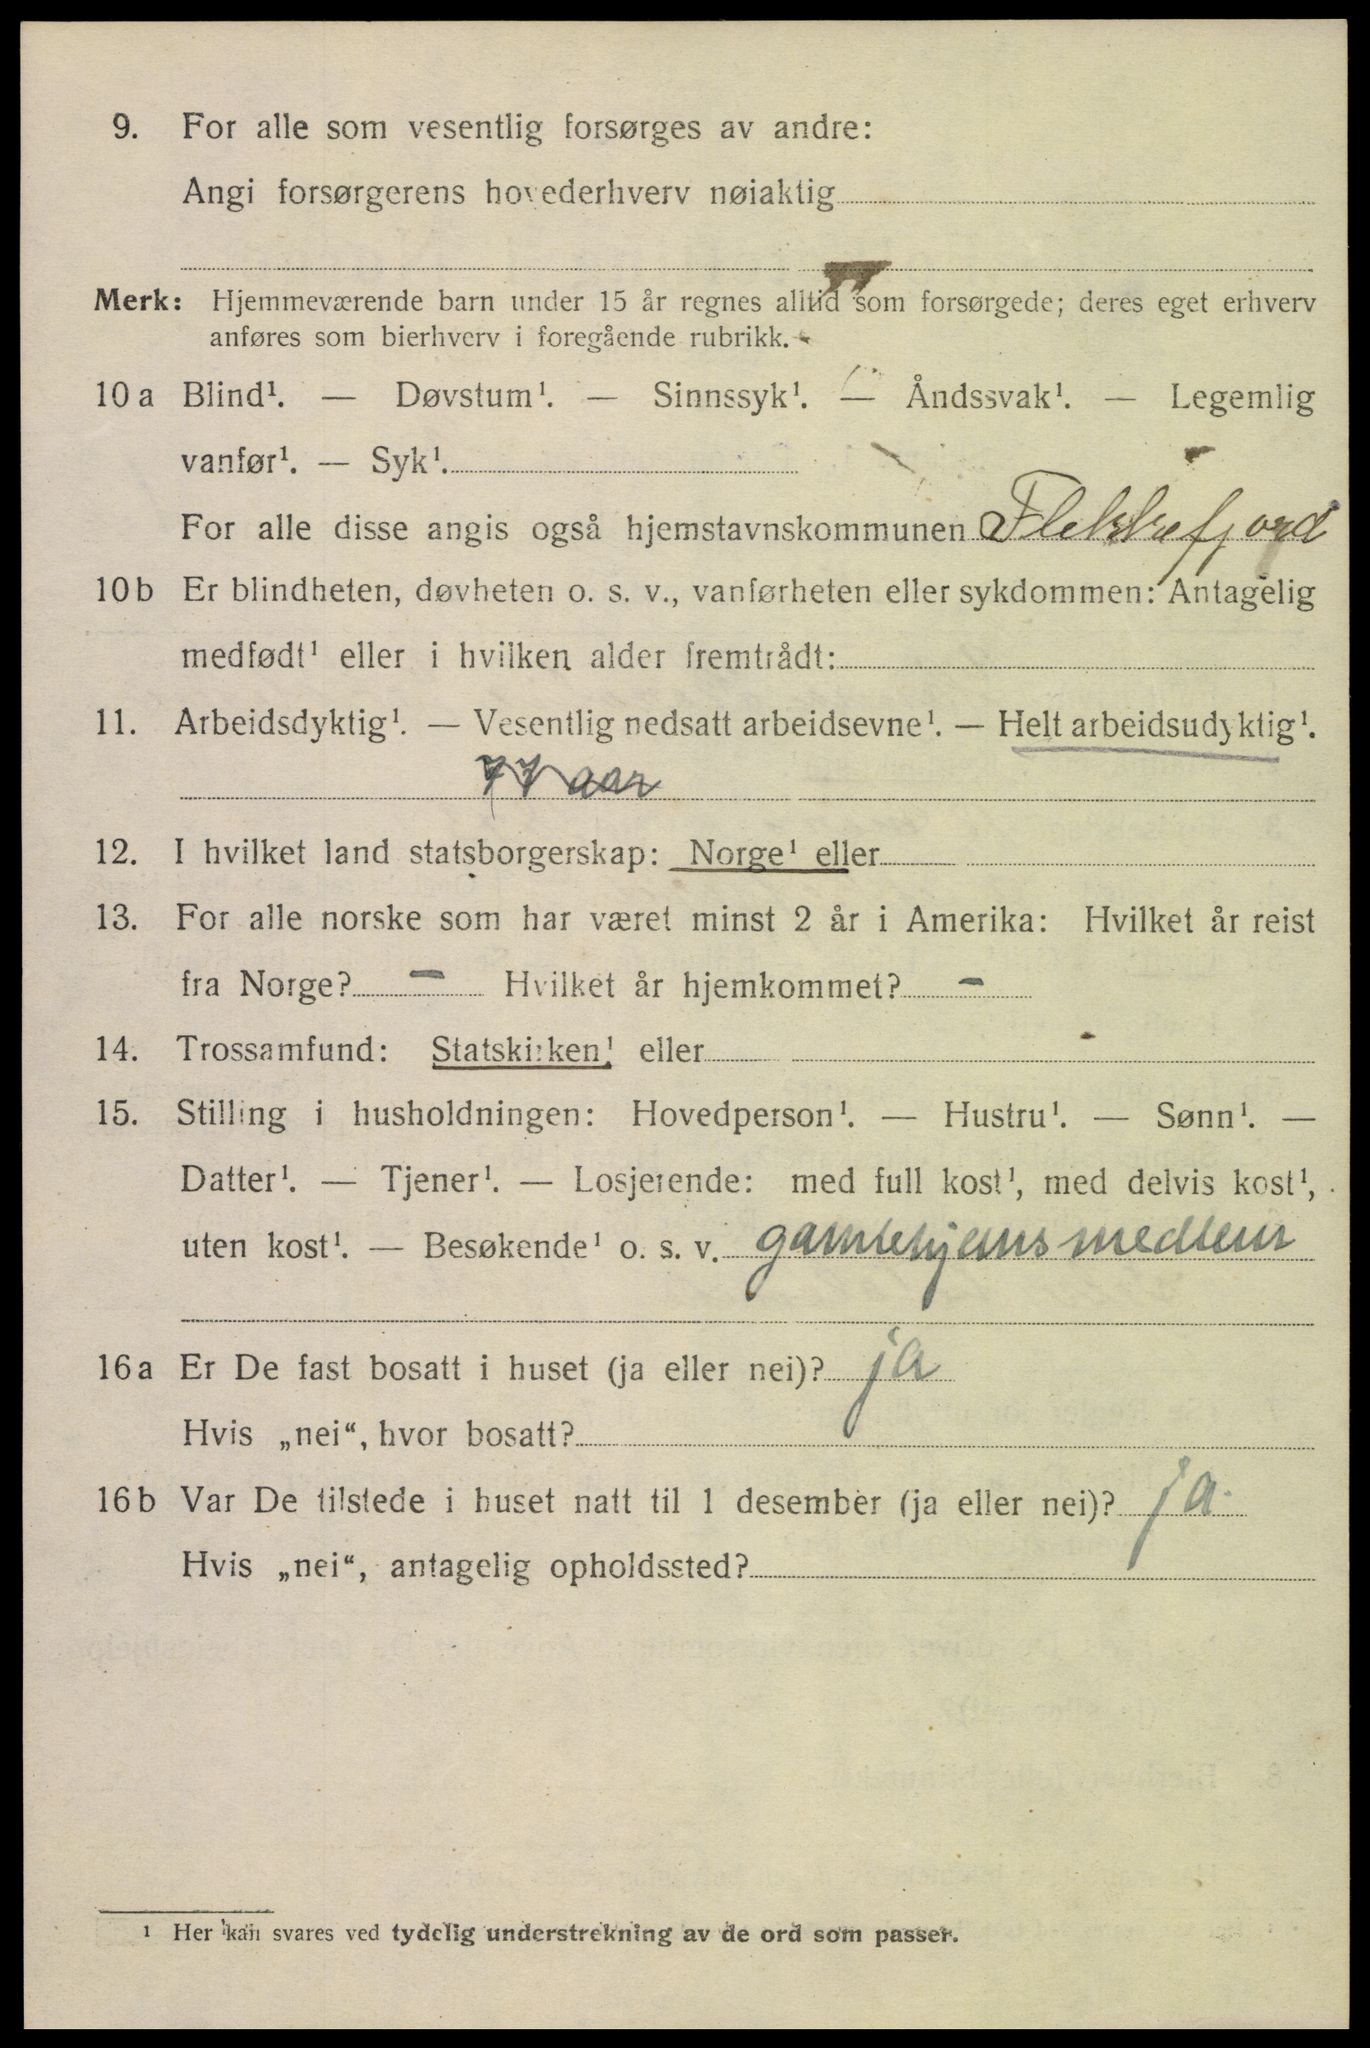 9. For alle som vesentlig forsørges av andre:
Angi forsørgerens hovederhverv nøiaktig
Merk: Hjemmeværende barn under 15 år regnes alltid som forsørgede; deres eget erhverv
anføres som bierhverv i foregående rubrikk.
10 a Blind¹. — Døvstum¹. — Sinnssyk¹. — Åndssvak¹. — Legemlig
vanfør¹. — Syk¹.
For alle disse angis også hjemstavnskommunen Flekkefjord
10 b Er blindheten, døvheten o. s. v., vanførheten eller sykdommen: Antagelig
medfødt¹ eller i hvilken alder fremtrådt:
11. Arbeidsdyktig¹. — Vesentlig nedsatt arbeidsevne¹. — Helt arbeidsudyktig¹.
77 aar
12. I hvilket land statsborgerskap: Norge¹ eller
13. For alle norske som har været minst 2 år i Amerika: Hvilket år reist
fra Norge? — Hvilket år hjemkommet? -
14. Trossamfund: Statskirken¹ eller
15. Stilling i husholdningen: Hovedperson¹. — Hustru¹. — Sønn¹. —
Datter¹. — Tjener¹. — Losjerende: med full kost¹, med delvis kost¹,
uten kost¹. — Besøkende¹ o. s. v. gamlehjemsmedlem
16 a Er De fast bosatt i huset (ja eller nei)? ja
Hvis „nei“, hvor bosatt?
16 b Var De tilstede i huset natt til 1 desember (ja eller nei)? ja.
Hvis „nei“, antagelig opholdssted?
¹ Her kan svares ved tydelig understrekning av de ord som passer.